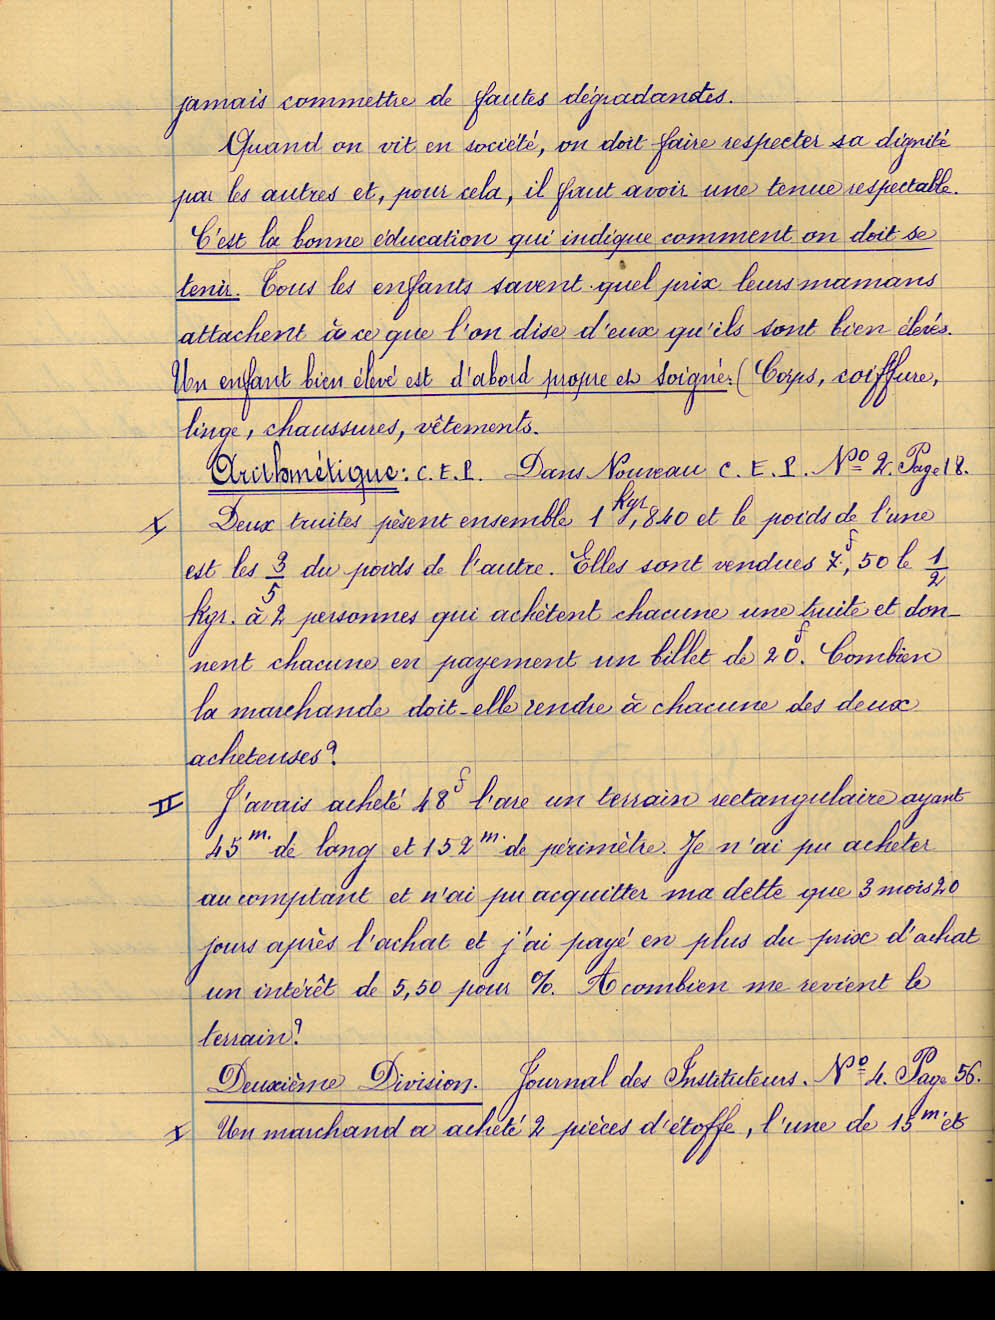 jamais commettre de fautes dégradantes.
Quand on vit en société, on doit faire respecter sa dignité
par les autres et, pour cela, il faut avoir une tenue respectable.
C'est la bonne éducation qui indique comment on doit se
tenir. Tous les enfants savent quel prix leurs mamans
attachent à ce que l'on dise d'eux qu'ils sont bien élevés.
Un enfant bien élevé est d'abord propre et soigné: (Corps, coiffure,
linge, chaussures, vêtements.
Arithmétique: C.E.P. Dans Nouveau C.E.P. Nº 2. Page 18.
I Deux truites pèsent ensemble 1 kgr,840 et le poids de l'une
est les 3/5 du poids de l'autre. Elles sont vendues 7f,50 le 1/2
kgr. à 2 personnes qui achètent chacune une truite et don-
nent chacune en payement un billet de 20f. Combien
la marchande doit-elle rendre à chacune des deux
acheteuses?
II J'avais acheté 48f l'are un terrain rectangulaire ayant
45m. de long et 152m. de périmètre. Je n'ai pu acheter
au comptant et n'ai pu acquitter ma dette que 3 mois 20
jours après l'achat et j'ai payé en plus du prix d'achat
un intérêt de 5,50 pour %. A combien me revient le
terrain?
Deuxième Division. Journal des Instituteurs. Nº 4. Page 56.
I Un marchand a acheté 2 pièces d'étoffe, l'une de 15m. et